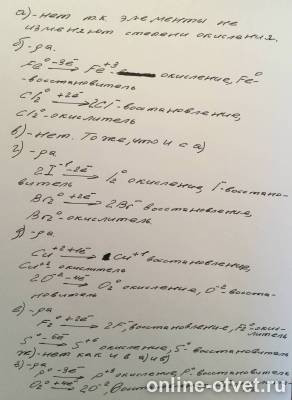 а) - нет т.к. элементы не
изменяют степени окисления.
б) - да.
Fe⁰ -3e⁻ → Fe⁺³ - окисление, Fe⁰-
- восстановитель
Cl₂⁰ +2e⁻ → 2Cl⁻ - востановление,
Cl₂⁰ - окислитель
в) - нет. То же, что и с а)
г) - да
2I⁻¹ -2e⁻ → I₂⁰ окисление, I⁻ - восстано-
витель
Br₂⁰ +2e⁻ → 2Br⁻ восстановление,
Br₂⁰ - окислитель
д) - да
Cu⁺² +1e⁻ → Cu⁺¹ восстановление,
Cu⁺² окислитель
2O⁻² -4e⁻ → O₂⁰ окисление, O⁻² - восста-
новитель
е) - да
F₂⁰ +2e⁻ → 2F⁻, восстановление, F₂⁰ - окис-
литель
S⁰ -6e⁻ → S⁺⁶ окисление, S⁰ - восстановитель
ж) - нет как и в а) и в)
з) - да
O₂⁰ +4e⁻ → 2O⁻²
online-otvet.ru